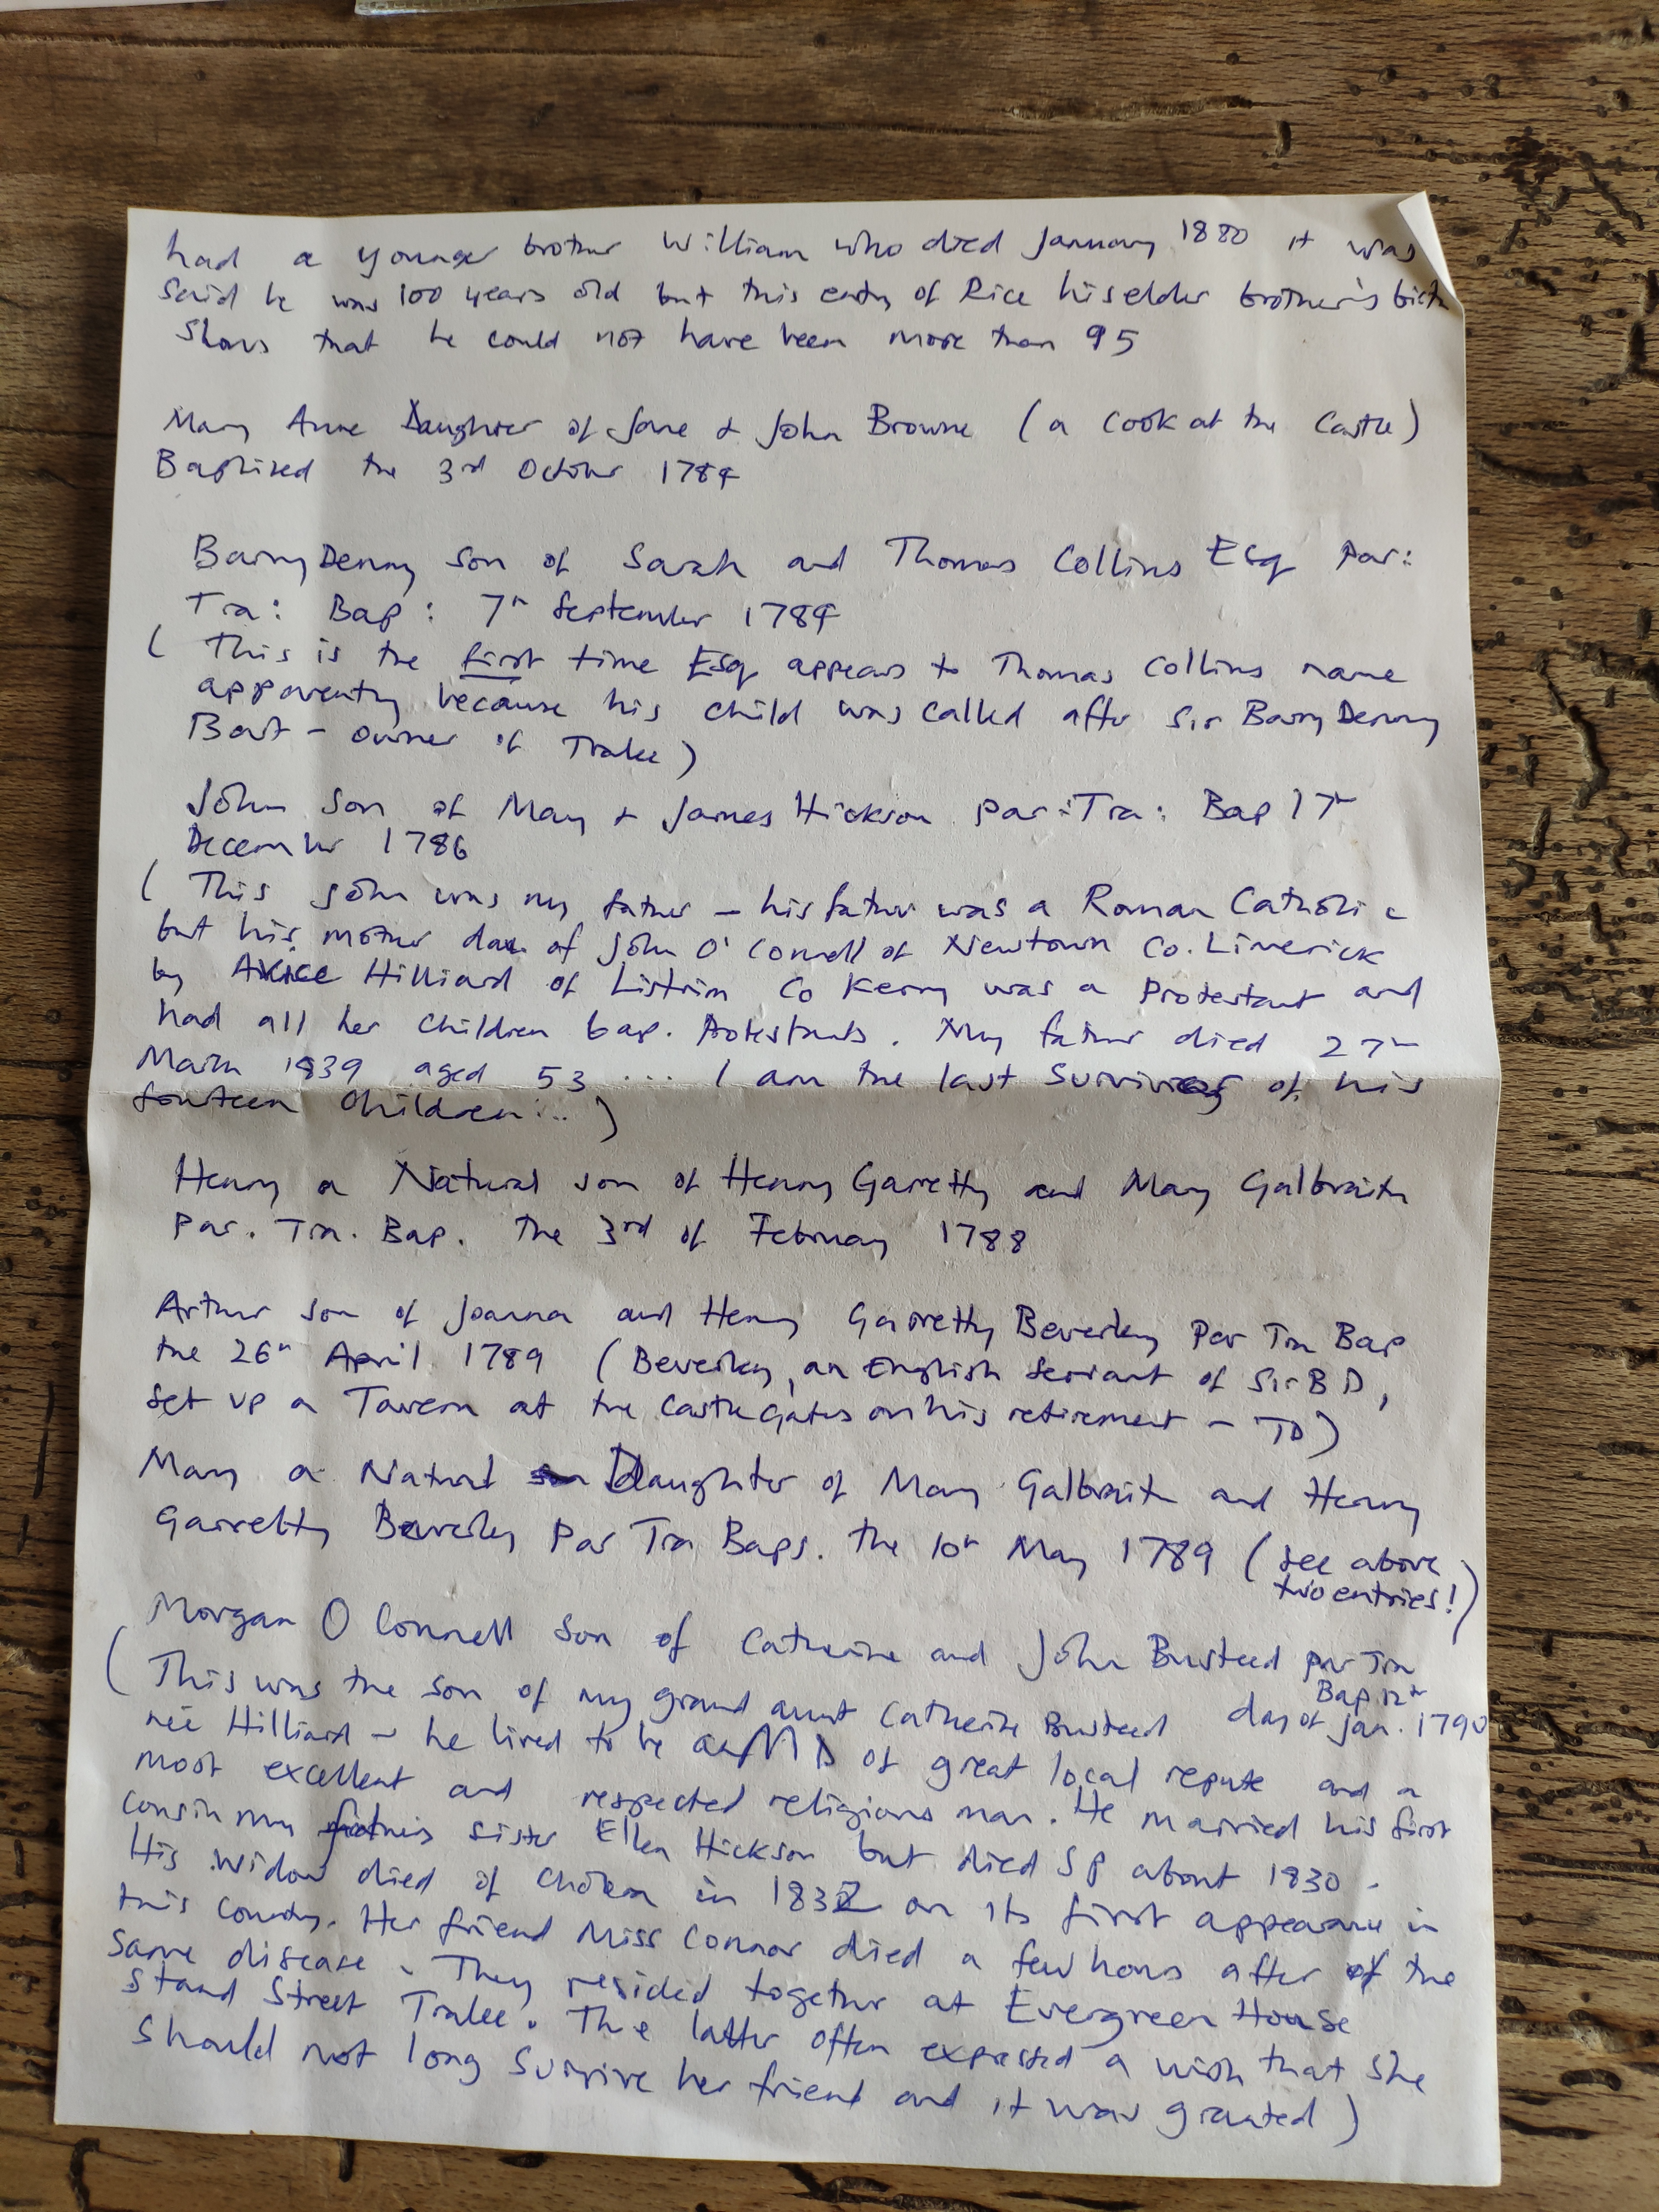 had a younger brother William who died January 1880 it was
said he was 100 years old but this entry of Rice his elder brother's birth
shows that he could not have been more than 95
Mary Anne Daughter of Jane & John Browne (a cook at the Castle)
Baptised the 3rd October 1784
Barry Denny son of Sarah and Thomas Collins Esq Par:
Tra: Bap: 7th September 1784
( This is the first time Esq appears to Thomas Collins name
apparently because his child was called after Sir Barry Denny
Bart - owner of Tralee)
John Son of Mary & James Hickson par: Tra: Bap 17th
December 1786
( This John was my father - his father was a Roman Catholic
but his mother dau. of John O'Connell of Newtown Co. Limerick
by Alice Hilliard of Listrim Co Kerry was a Protestant and
had all her children bap. Protestants. My father died 27th
March 1839 aged 53 ... I am the last survivor of his
fourteen children...)
Henry a Natural son of Henry Garretty and Mary Galbraith
Par. Tra. Bap. the 3rd of February 1788
Arthur son of Joanna and Henry Garretty Beverley Par Tra Bap
the 26th April 1789 (Beverley, an English servant of Sir B D,
set up a Tavern at the Castle Gates on his retirement - TD)
Mary a Natural Daughter of Mary Galbraith and Henry
Garretty Beverley Par Tra Baps. the 10th May 1789 (see above
two entries!)
Morgan O Connell son of Catherine and John Busteed par Tra
Bap 12th
day of Jan. 1790
( This was the son of my grand aunt Catherine Busteed
née Hilliard - he lived to be an MD of great local repute and a
most excellent and respected religious man. He married his first
cousin my father's sister Ellen Hickson but died SP about 1830 -
His widow died of cholera in 1832 on its first appearance in
this county. Her friend Miss Connor died a few hours after of the
same disease. They resided together at Evergreen House
Stand Street Tralee. The latter often expressed a wish that she
should not long survive her friend and it was granted)